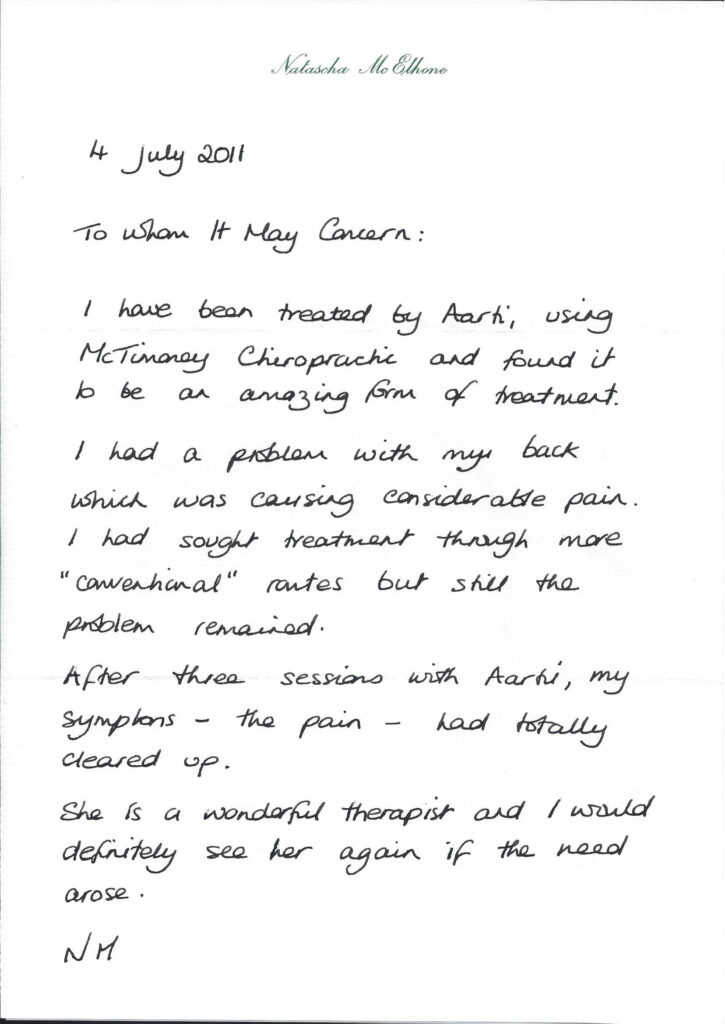 Natascha McElhone
4 July 2011
To Whom It May Concern:
I have been treated by Aarti, using
McTimoney Chiropractic and found it
to be an amazing form of treatment.
I had a problem with my back
which was causing considerable pain.
I had sought treatment through more
"conventional" routes but still the
problem remained.
After three sessions with Aarti, my
symptoms - the pain - had totally
cleared up.
She is a wonderful therapist and I would
definitely see her again if the need
arose.
NM